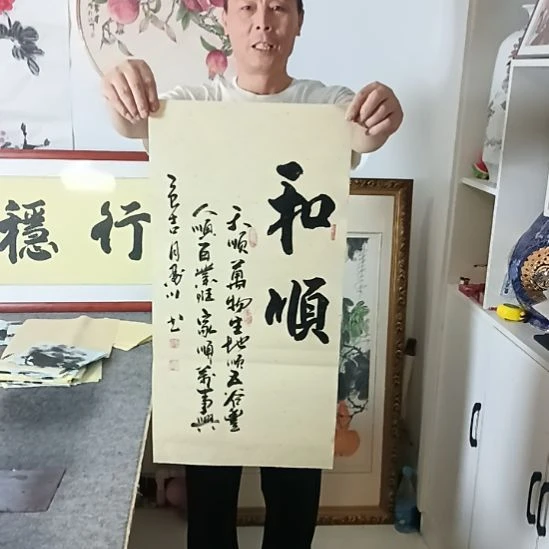 和順
天順萬物生地順五谷豐
人順百業旺家順萬事興
書
行穩